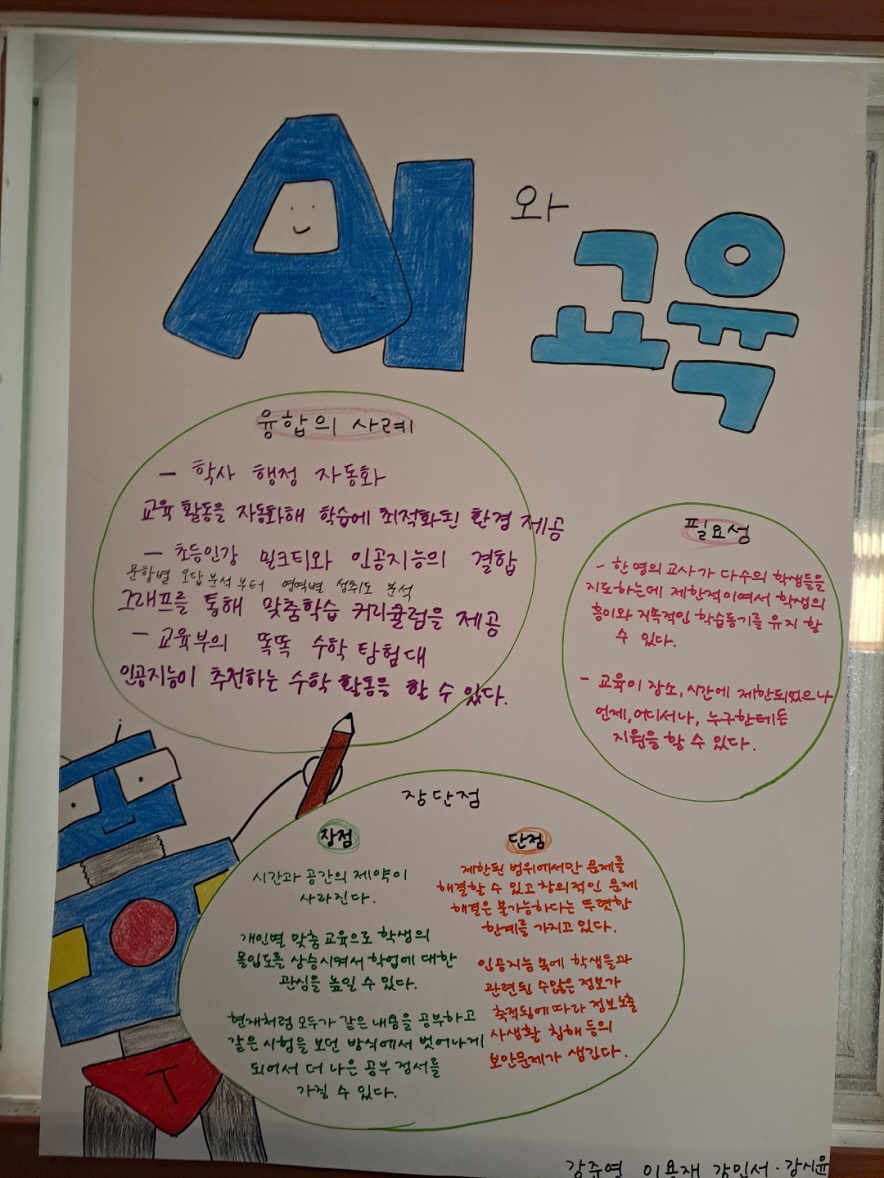 AI와
교육
융합의 사례
- 학사 행정 자동화
교육 활동을 자동화해 학습에 최적화된 환경 제공
- 초등인강 밀크티와 인공지능의 결합
문항별 오답 분석부터 영역별 성취도 분석
그래프를 통해 맞춤학습 커리큘럼을 제공
- 교육부의 똑똑 수학 탐험대
인공지능이 추천하는 수학 활동을 할 수 있다.
필요성
- 한 명의 교사가 다수의 학생들을
지도하는데 제한적이여서 학생의
흥미와 지속적인 학습동기를 유지 할
수 있다.
- 교육이 장소, 시간에 제한되었으나
언제, 어디서나, 누구한테든
지원을 할 수 있다.
장단점
장점
시간과 공간의 제약이
사라진다.
개인별 맞춤 교육으로 학생의
몰입도를 상승시켜서 학업에 대한
관심을 높일 수 있다.
현재처럼 모두가 같은 내용을 공부하고
같은 시험을 보던 방식에서 벗어나게
되어서 더 나은 공부 정서를
가질 수 있다.
단점
제한된 범위에서만 문제를
해결할 수 있고 창의적인 문제
해결은 불가능하다는 뚜렷한
한계를 가지고 있다.
인공지능 속에 학생들과
관련된 수많은 정보가
축적됨에 따라 정보노출
사생활 침해 등의
보안문제가 생긴다.
T
강준영 이용재 강인서·강시윤